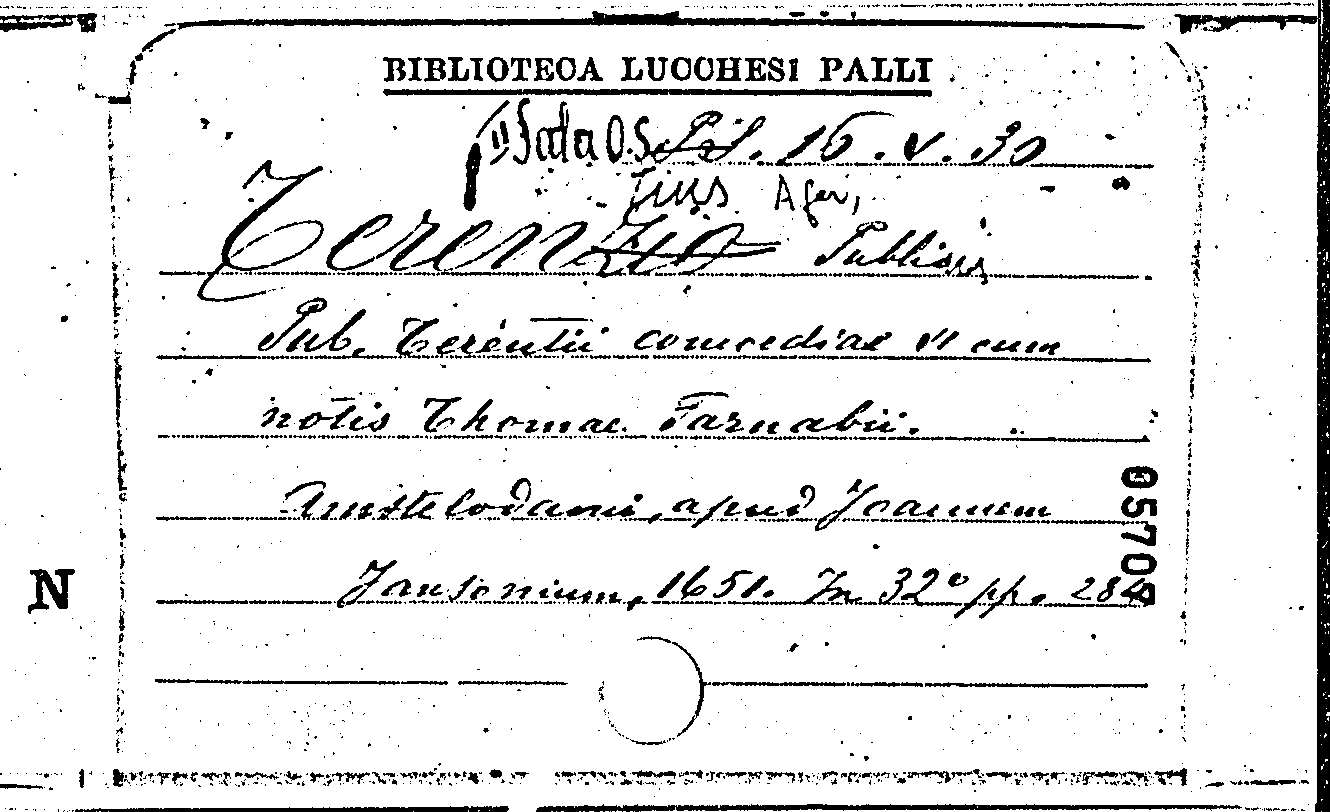 BIBLIOTECA LUCCHESI PALLI
II Sala O.S. 16. V. 30
Terenzio tius Afer, Publius
Pub. Terentii comoediae VI cum
notis Thomae Farnabii.
Amstelodami, apud Joannem
Jansonium, 1651. In 32º pp. 284
05709
N